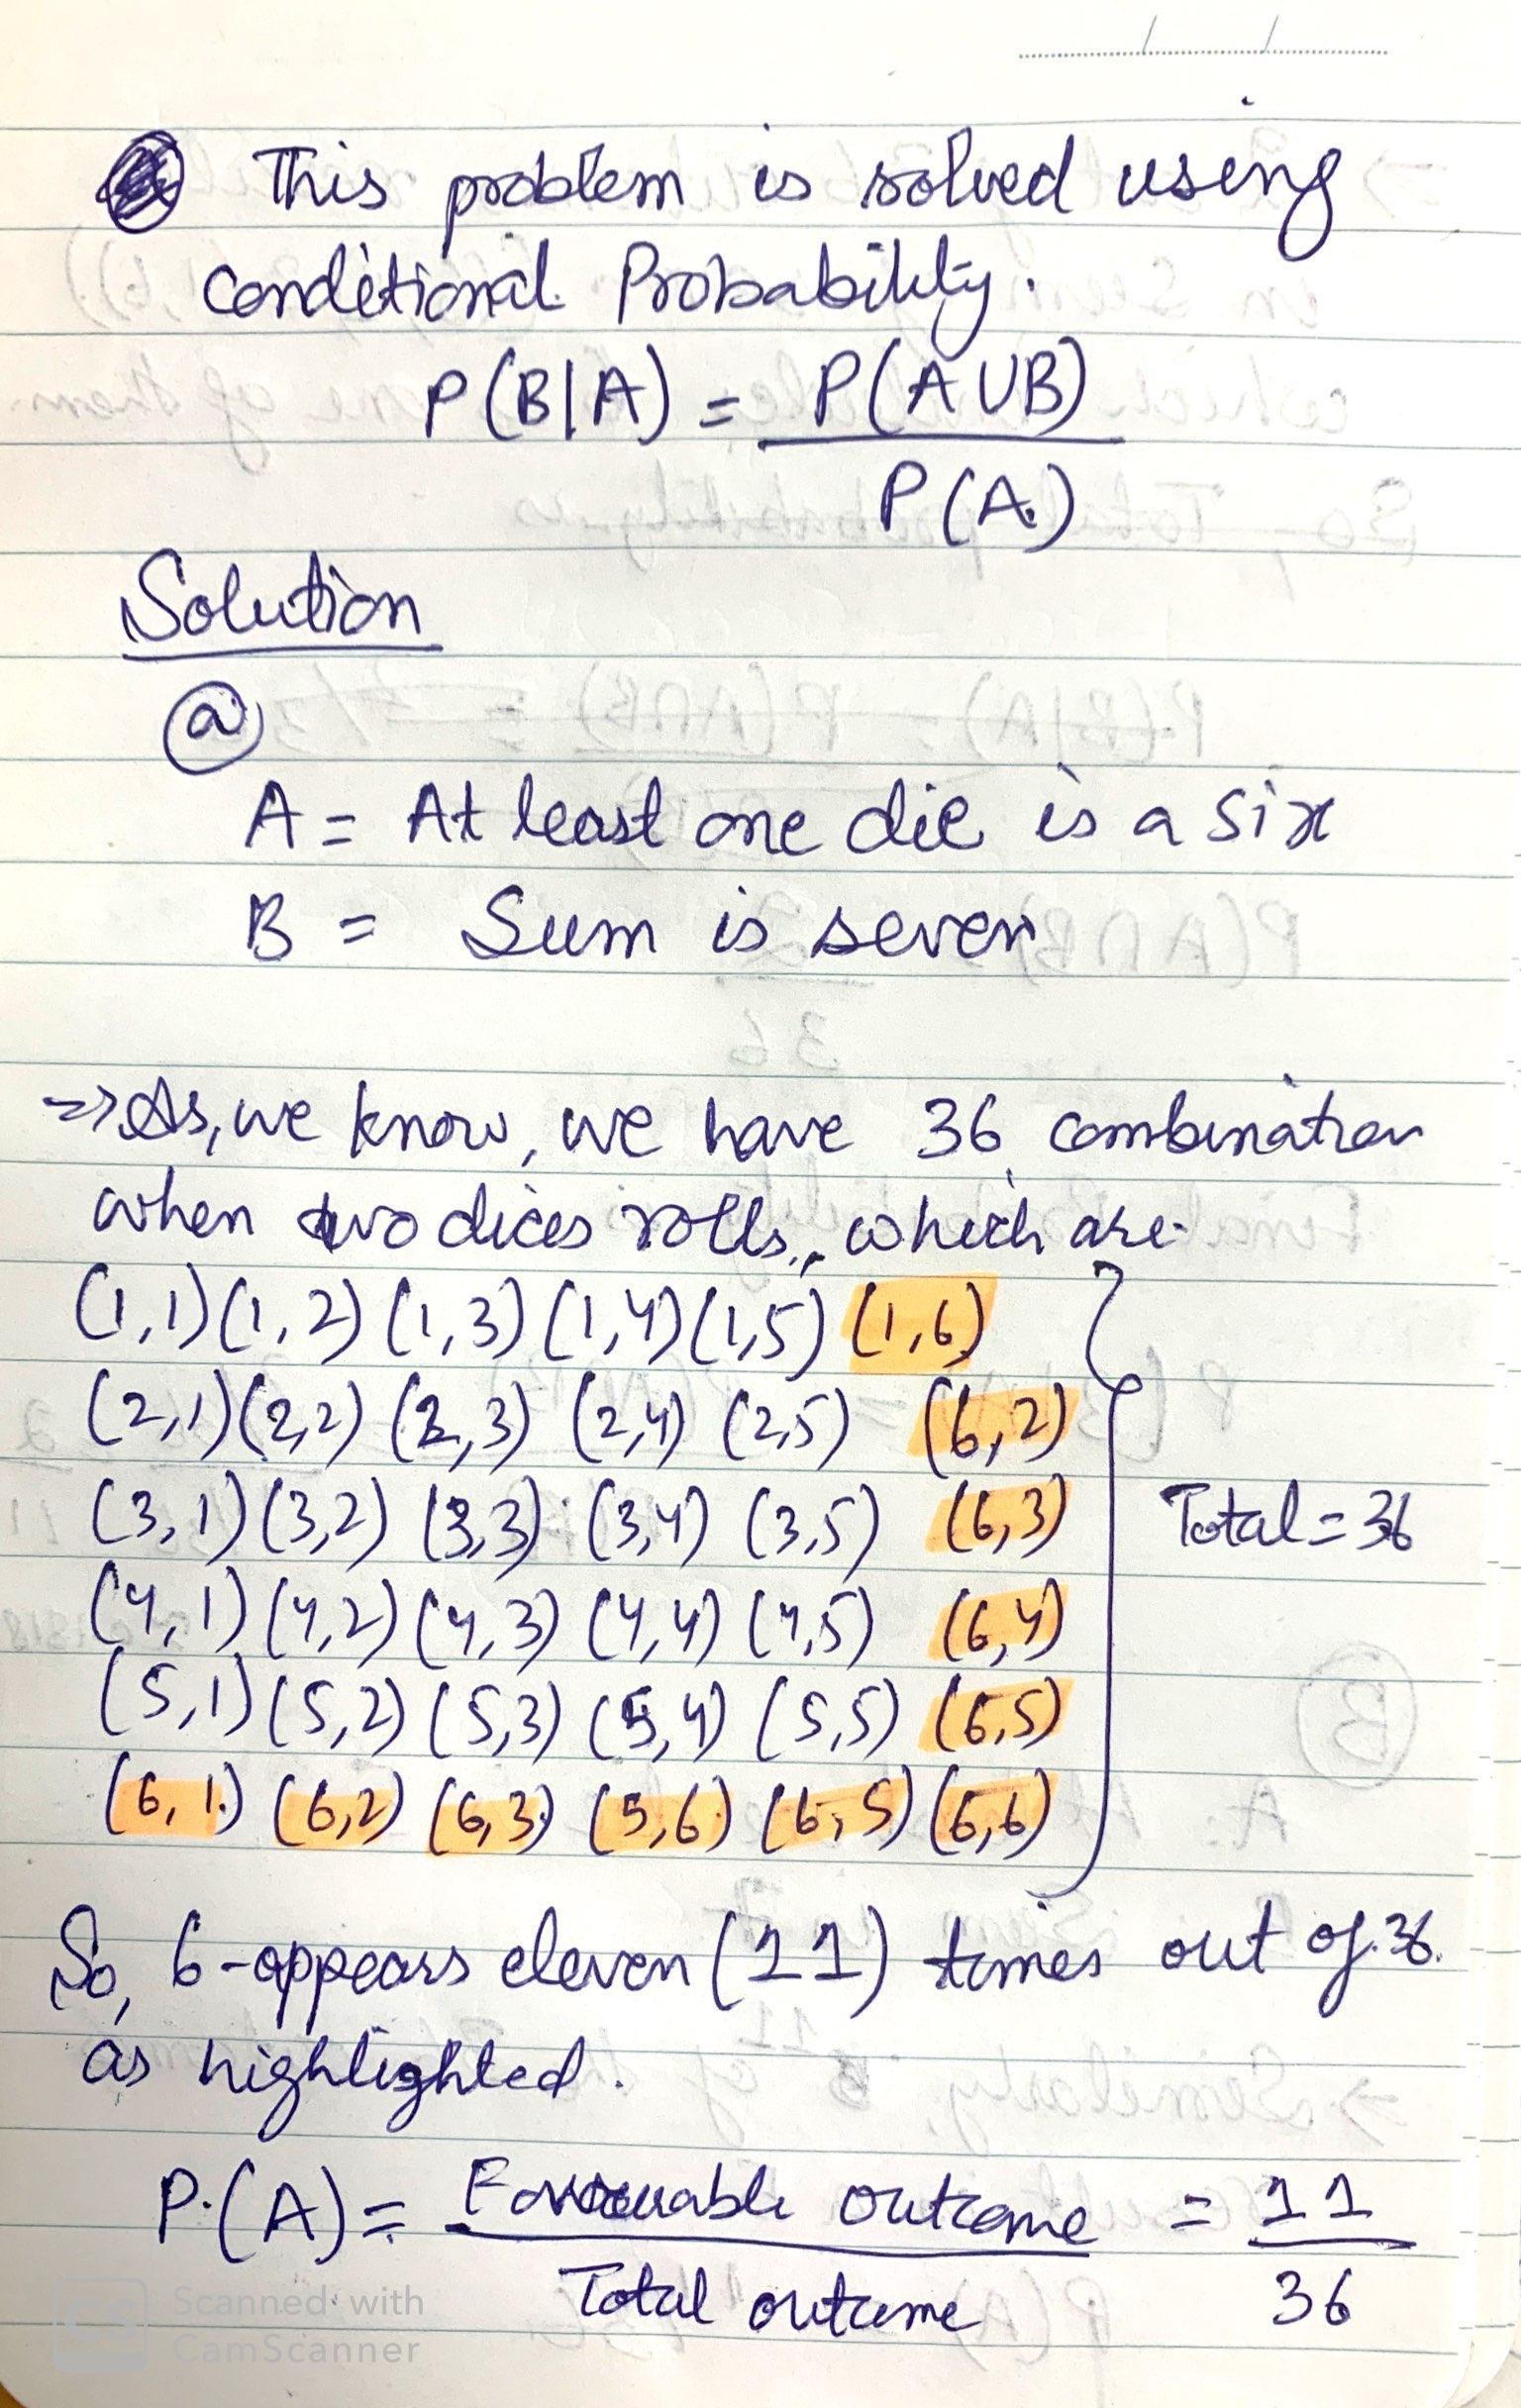 This problem is solved using
Conditional Probability.
P(B|A) = P(A∪B)
P(A)
Solution
(a)
A = At least one die is a six
B = Sum is seven
=> As, we know, we have 36 combination
when two dices rolls, which are
(1,1) (1,2) (1,3) (1,4) (1,5) (1,6)
(2,1) (2,2) (2,3) (2,4) (2,5) (6,2)
(3,1) (3,2) (3,3) (3,4) (3,5) (6,3) Total = 36
(4,1) (4,2) (4,3) (4,4) (4,5) (6,4)
(5,1) (5,2) (5,3) (5,4) (5,5) (6,5)
(6,1) (6,2) (6,3) (5,6) (6,5) (6,6)
So, 6-appears eleven (11) times out of 36.
as highlighted.
P(A) = Favourable outcome = 11
Total outcome 36
Scanned with
CamScanner